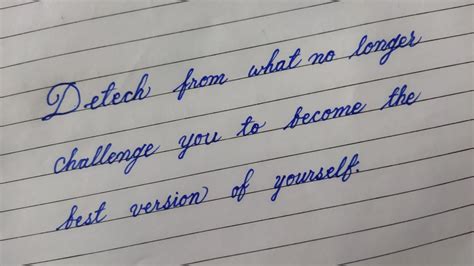 Detech from what no longer
challenge you to become the
best version of yourself.